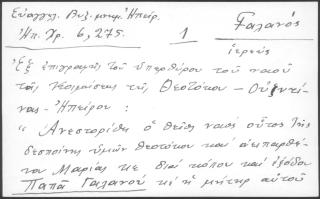 Εὐαγγελ. Βυζ. μνημ. Ἠπείρ.
Ἠπ. Χρ. 6, 275.
1
Γαλανός
ἱερεύς
Ἐξ ἐπιγραφῆς τοῦ ὑπερθύρου τοῦ ναοῦ
τῆς Κοιμήσεως τῆς Θεοτόκου –
νας – Ἠπείρου :
" Ἀνεστορίθη ὁ θεῖος ναός οὗτος τῆς
δεσποίνης ὑμῶν θεοτόκου καί ἀειπαρθέ-
νου Μαρίας κε διά κόπου καί ἐξόδου
Παπᾶ Γαλανοῦ κί ἡ μήτηρ αὐτοῦ